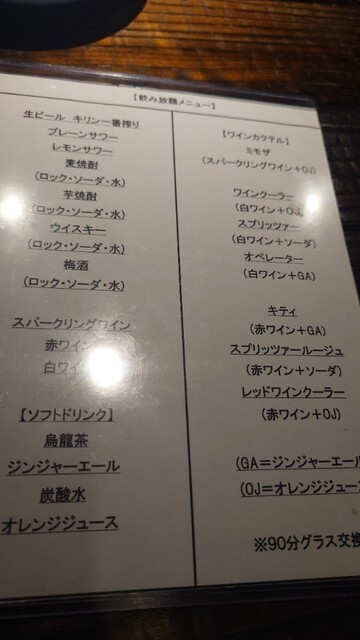 【飲み放題メニュー】
生ビール キリン一番搾り
プレーンサワー
レモンサワー
麦焼酎
(ロック・ソーダ・水)
芋焼酎
(ロック・ソーダ・水)
ウイスキー
(ロック・ソーダ・水)
梅酒
(ロック・ソーダ・水)
スパークリングワイン
赤ワイン
白ワイン
【ソフトドリンク】
烏龍茶
ジンジャーエール
炭酸水
オレンジジュース
【ワインカクテル】
ミモザ
(スパークリングワイン+OJ)
ワインクーラー
(白ワイン+OJ)
スプリッツァー
(白ワイン+ソーダ)
オペレーター
(白ワイン+GA)
キティ
(赤ワイン+GA)
スプリッツァールージュ
(赤ワイン+ソーダ)
レッドワインクーラー
(赤ワイン+OJ)
(GA=ジンジャーエール
(OJ=オレンジジュース
※90分グラス交換